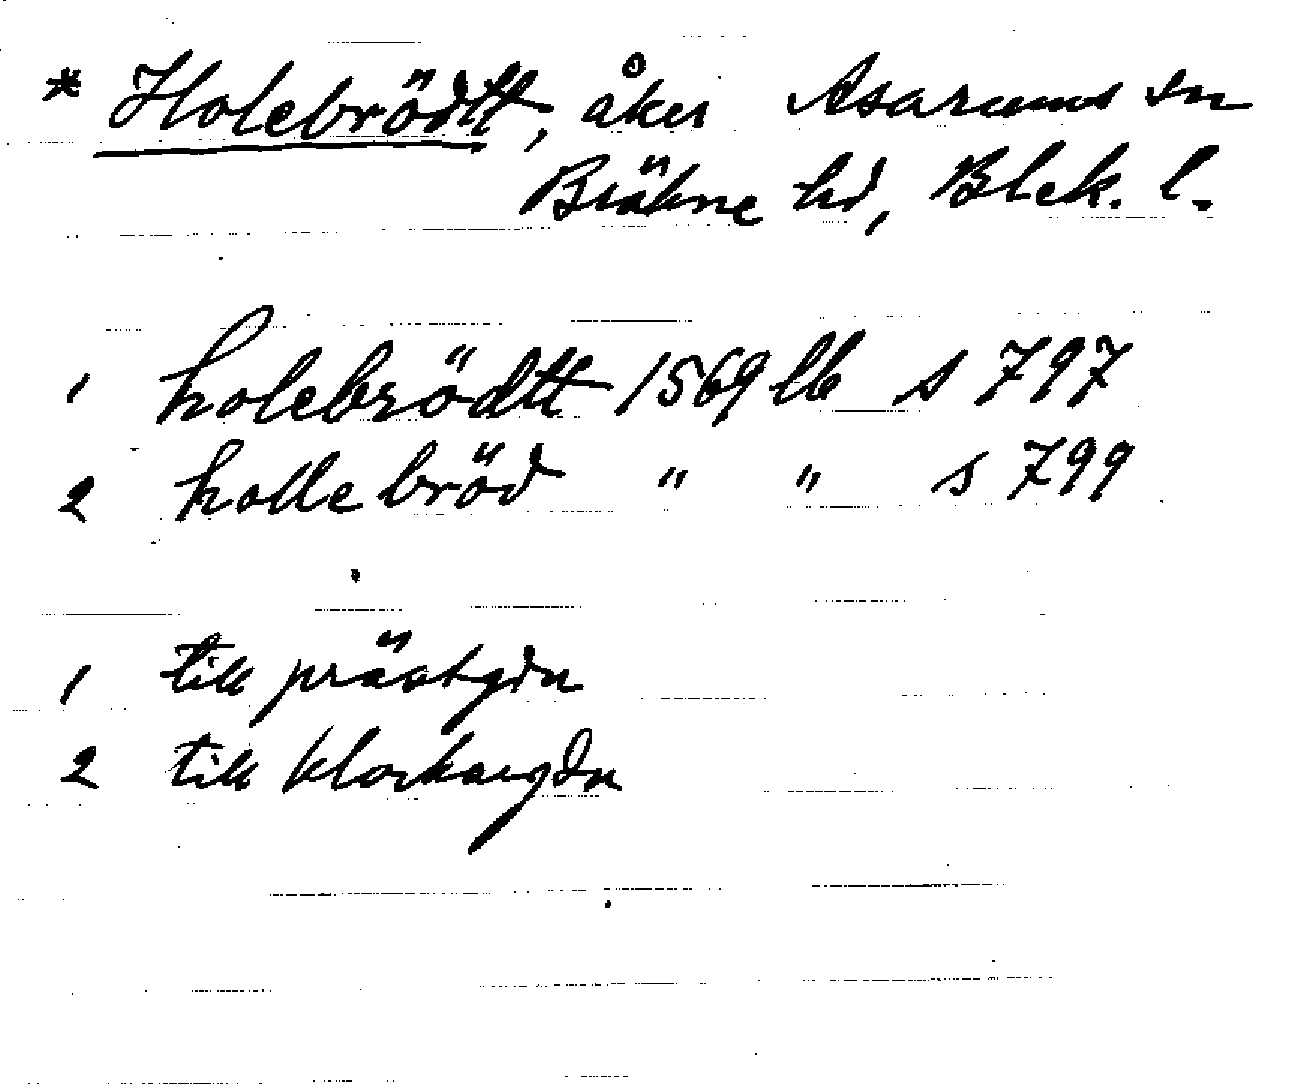 * Holebrödtt, åker Asarums sn
Bräkne hd, Blek. l.
1 holebrödtt 1569 lb s 797
2 holle bröd " " s 799
1 till prästgdn
2 till klockargdn